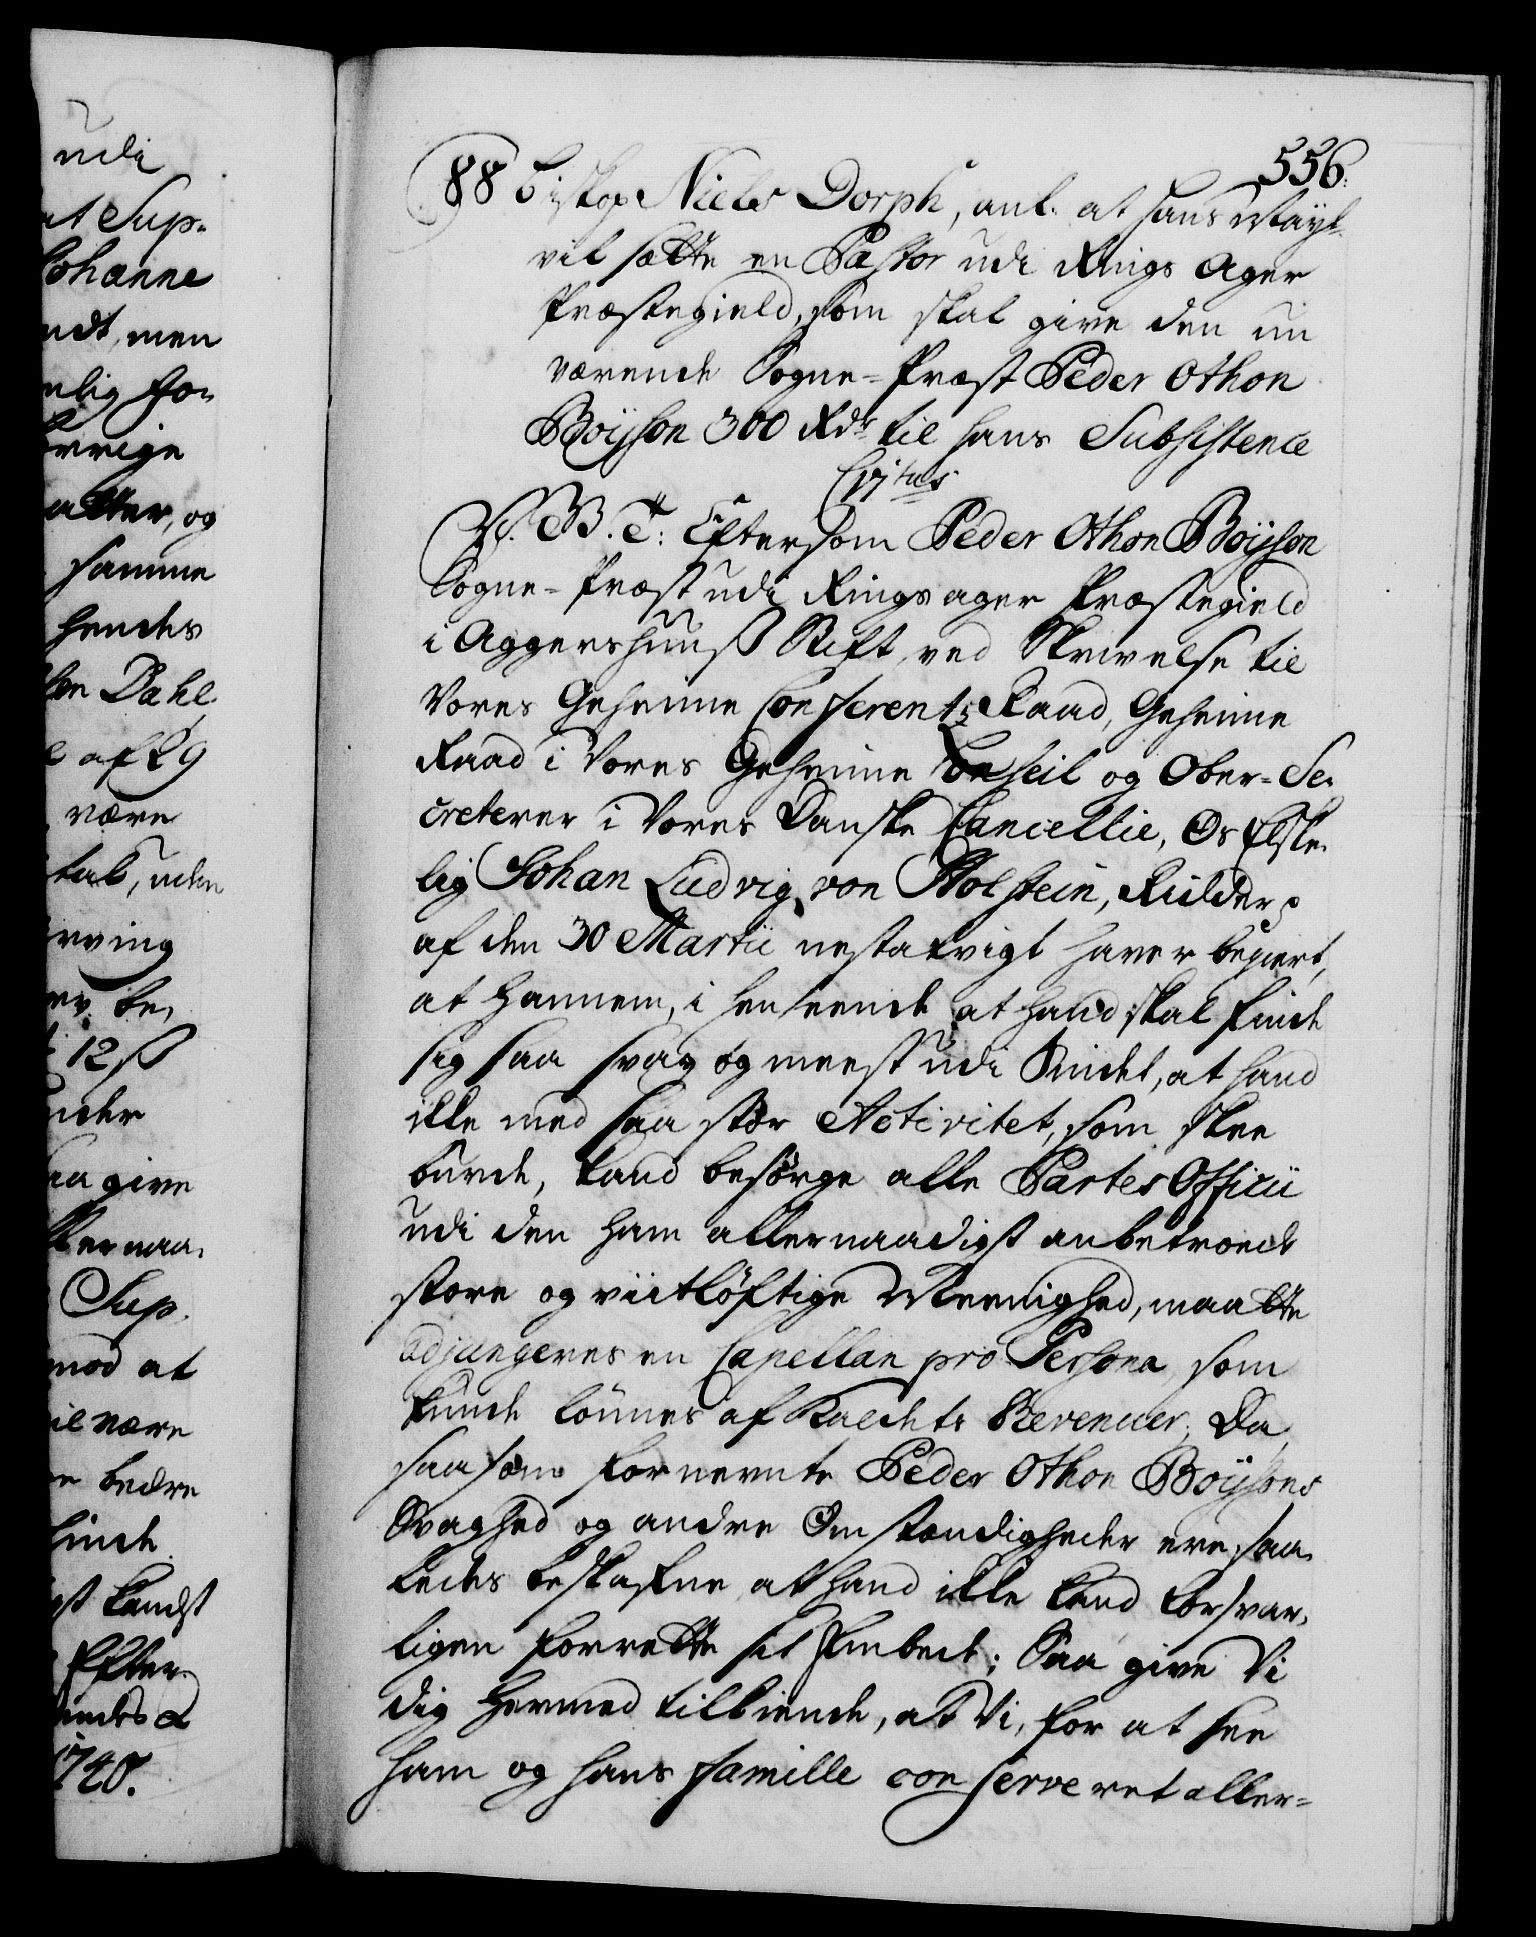 udi
at Sup-
Johanne
ndt, men
nlig for
örrige
atter, og
samme
hendes
Dahl
e af 29
være
tal, uden
rving
rv. be,
12 ß
under
aa give
llernaa,
Sup.
mod at
il være
e bedre
finde
st Lands
Efter-
indes
1740.
556.
88 Biskop Niels Dorph, anl. at hans Mayt.
vil sætte en Pastor udi Rings Ager
Præstegield, som skal give den nu
værende Sogne-Præst Peder Othon
Boÿson 300 Rdr til hans Subsistence
C. 6tus
V. G. T. Eftersom Peder Othon Boÿson
Sogne-Præst udi Ringsager Præstegield
i Aggershuuß Stift, ved Skrivelse til
Vores Geheime Conferentz Raad, Geheime
Raad i Vores Geheime Conseil og Ober-Se-
creterer i Vores Danske Cancellie, Os Elske-
lig Johan Ludvig von Holstein, Ridder p
af den 30 Martii nestafvigt haver begiert,
at hannem, i henseende at hand skal finde
sig saa svag og meest udi Sindet, at hand
ikke med saa stor Activitet, som skee
burde, kand besörge alle Partes Officii
udi den ham allernaadigst anbetroede
store og viitlöftige Meenighed, maatte
adjungeres en Capellan pro Persona, som
kunde lönnes af Kaldets Revenuer, Da
saasom fornevnte Peder Othon Boÿsons
Svaghed og andre Omstændigheder ere saa-
ledes beskafne at hand ikke kand forsvar-
ligen forrette sit Embede; Saa give Vi
dig hermed tilkiende, at Vi, for at see
ham og hans Famille conserveret aller-